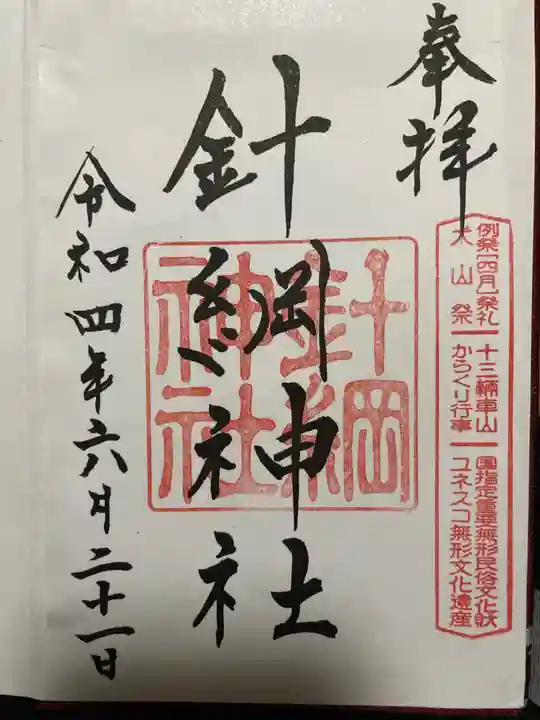 奉拝
例祭[四月]祭礼 十三輛車山 国指定重要無形民俗文化財
犬山祭 からくり行事 ユネスコ無形文化遺産
針綱神社
針綱神社
令和四年六月二十一日